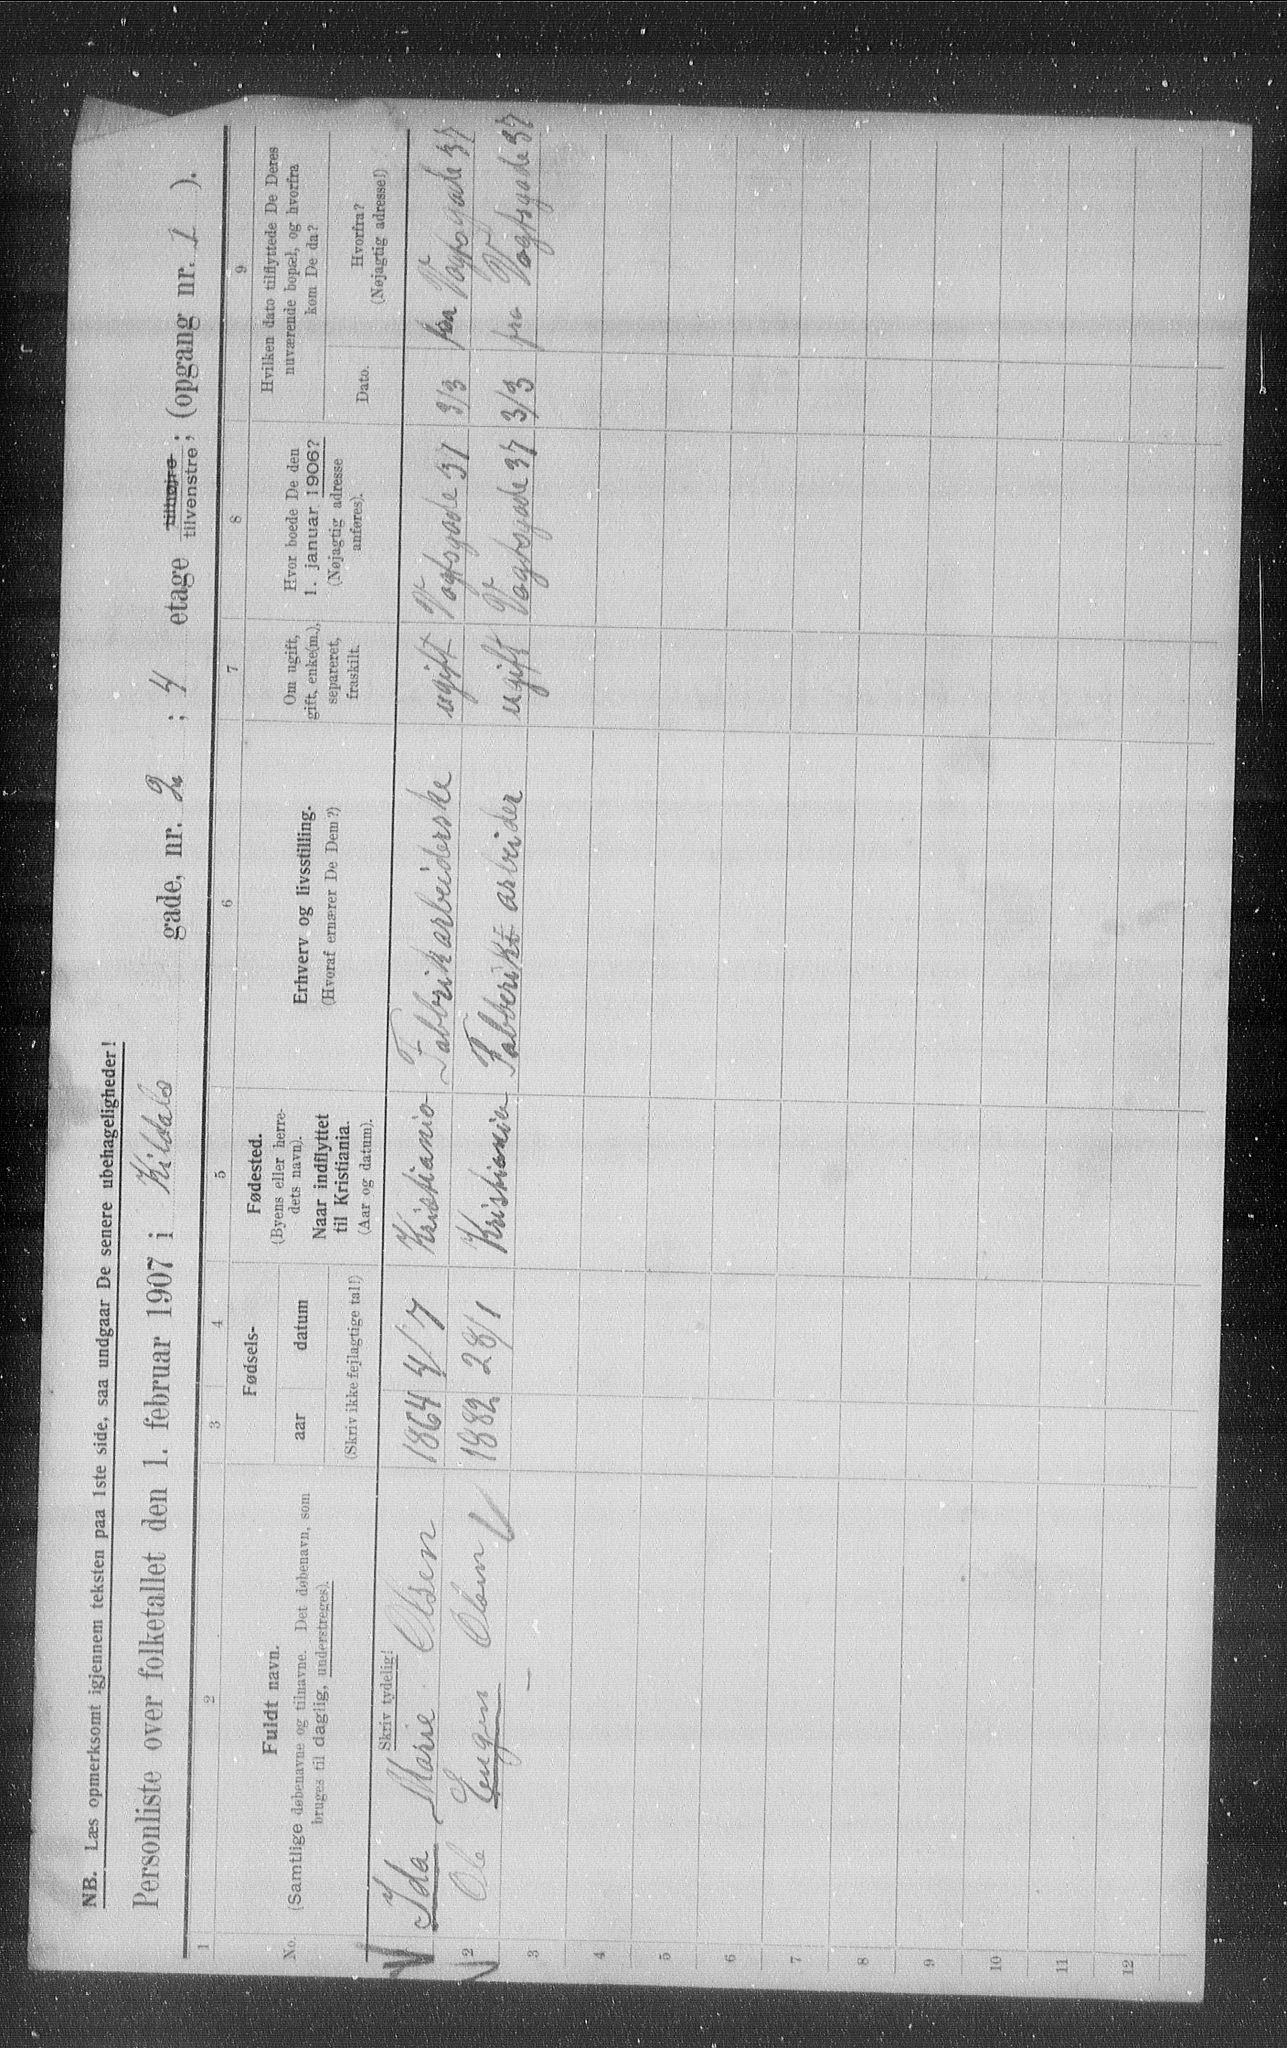 NB. Læs opmerksomt igjennem teksten paa 1ste side, saa undgaar De senere ubehageligheder!
Personliste over folketallet den 1. februar 1907 i Kildals gade, nr. 2 ; 4 etage tilhøjre tilvenstre; (opgang nr. 1 ).
1 2 3 4 5 6 7 8 9
No.
Fuldt navn.
(Samtlige døbenavne og tilnavne. Det døbenavn, som
bruges til daglig, understreges).
Fødsels-
aar datum
(Skriv ikke fejlagtige tal!)
Fødested.
(Byens eller herre-
dets navn).
Naar indflyttet
til Kristiania.
(Aar og datum).
Erhverv og livsstilling.
(Hvoraf ernærer De Dem?)
Om ugift,
gift, enke(m.),
separeret,
fraskilt.
Hvor boede De den
1. januar 1906?
(Nøjagtig adresse
anføres).
Hvilken dato tilflyttede De Deres
nuværende bopæl, og hvorfra
kom De da?
Dato.
Hvorfra?
(Nøjagtig adresse!)
Skriv tydelig!
Ida Marie Olsen 1864 4/7 Kristiania Fabbrikarbeiderske ugift Vogtsgade 37 3/3 fra Vogtsgade 37
2 Ole Eugen Olsen 1882 28/1 Kristiania Fabberikt arbeider ugift Vogtsgade 37 3/3 fra Vogtsgade 37
3 —
4
5
6
7
8
9
10
11
12